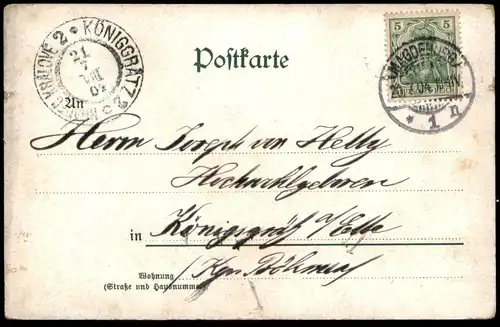 5 5
KÖNIGGRÄTZ 2
KRÁLOVÉ 2
Postkarte
MAGDEBURG
* 1 n
An
Herrn Joseph von Helly
Hochwohlgeboren
in Königgrätz a/Elbe
Kgr. Böhmen
Wohnung
(Straße und Hausnummer)